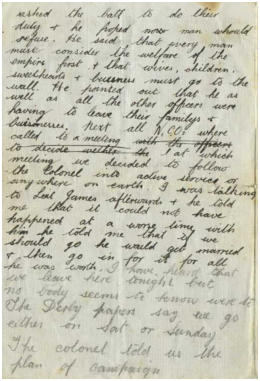 asked the batt to do their
duty & he hoped no man whould
refuse. He said that every man
must consider the welfare of the
empire first & that wives, children,
sweethearts & buisness must go to the
wall. He pointed out that he as
well as all the other officers were
having to leave their familys &
buisnesses. Next all N.C.Os where
called to a meeting with the officers
to decide wether the & at which
meeting we decided to follow
the Colonel into active service or
anywhere on earth. I was talking
to Leal James afterwards & he told
me that it could not have
happened at a worse time with
him he told me that if we
should go he would get married
& then go in for it for all
he was worth. I have heard that
we leave here tonight but
no body seems to know were to
The Derby papers say we go
either on Sat or Sunday
The colonel told us the
plan of campaign